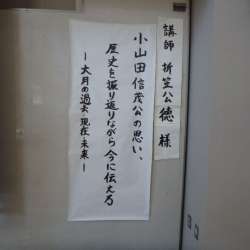 講師 折笠公徳 様
小山田信茂公の思い、
歴史を振り返りながら今に伝える
ー大月の過去 現在 未来ー